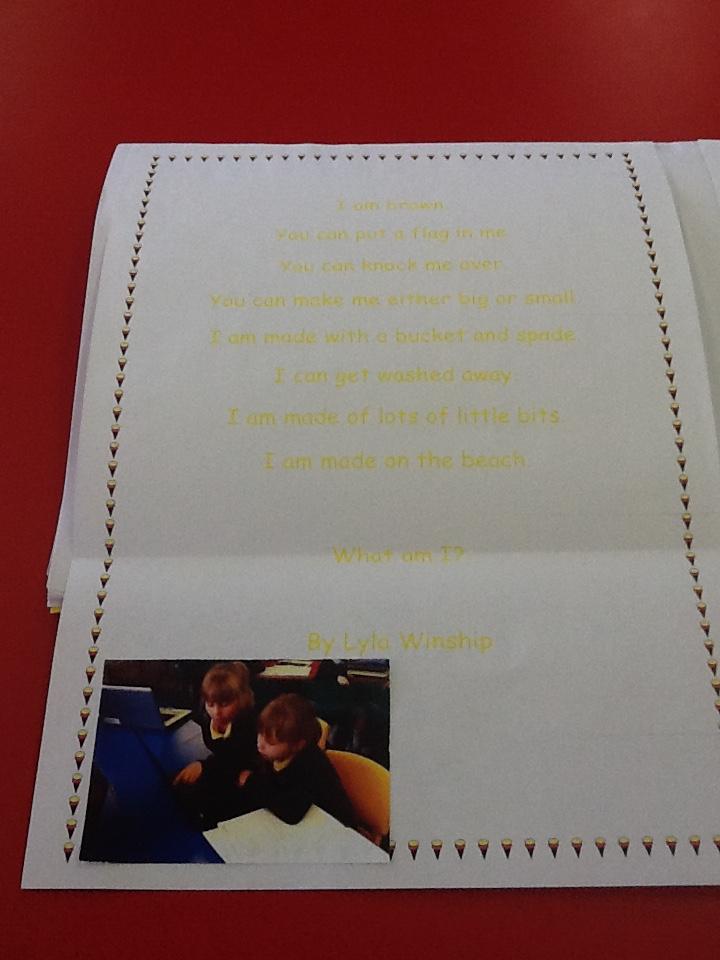 I am brown.
You can put a flag in me.
You can knock me over.
You can make me either big or small.
I am made with a bucket and spade.
I can get washed away.
I am made of lots of little bits.
I am made on the beach.
What am I?
By Lyla Winship